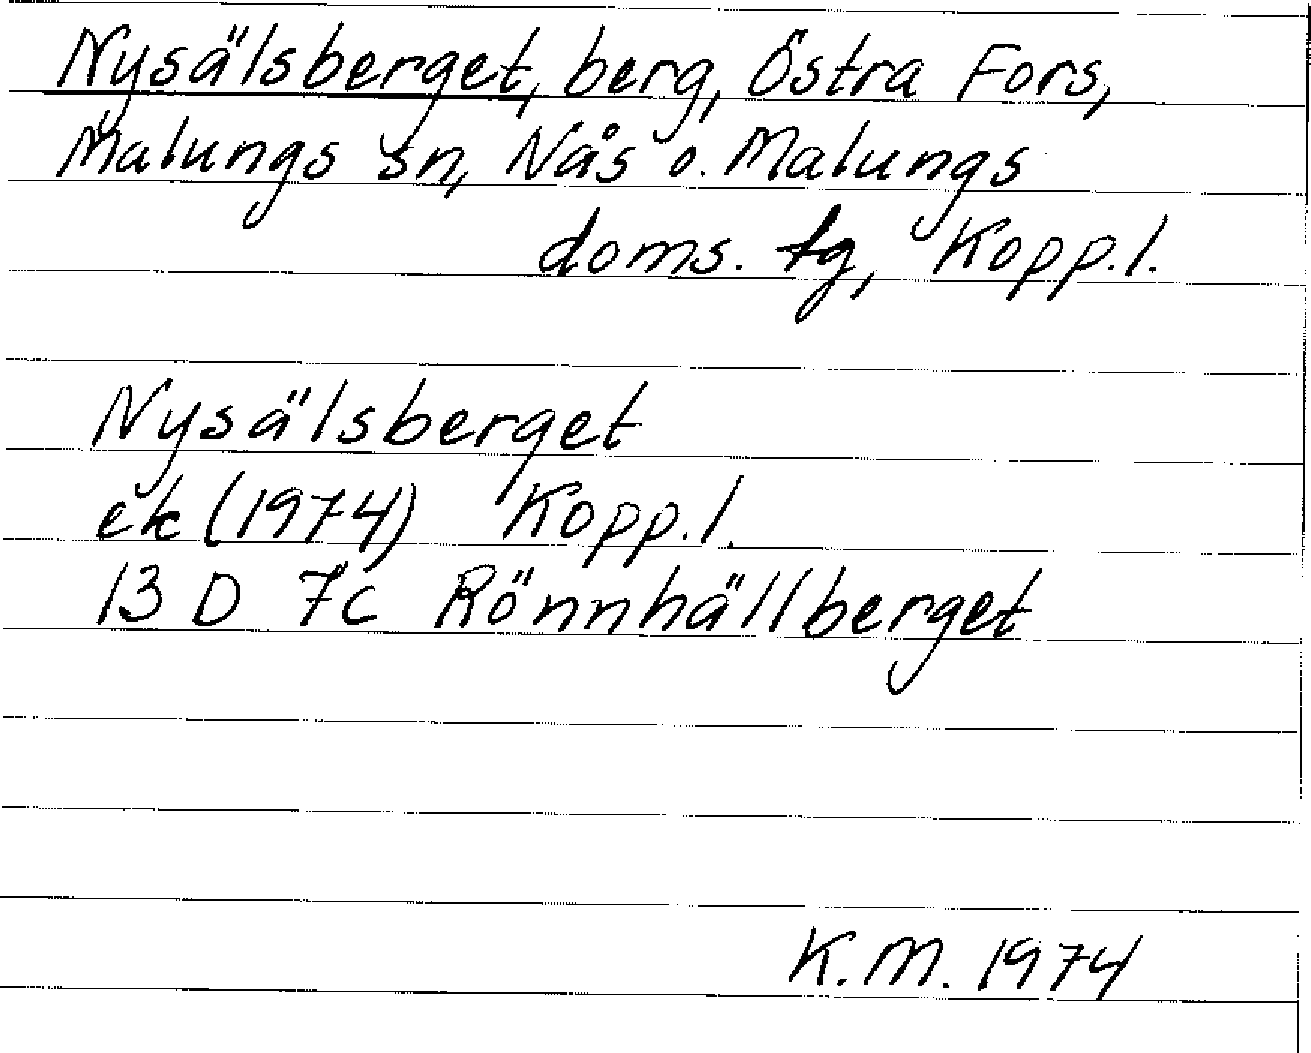 Nysälsberget, berg, Östra Fors,
Malungs sn, Nås o. Malungs
doms. tg, Kopp.l.
Nysälsberget
ek (1974) Kopp.l.
13 D 7c Rönnhällberget
K.M. 1974